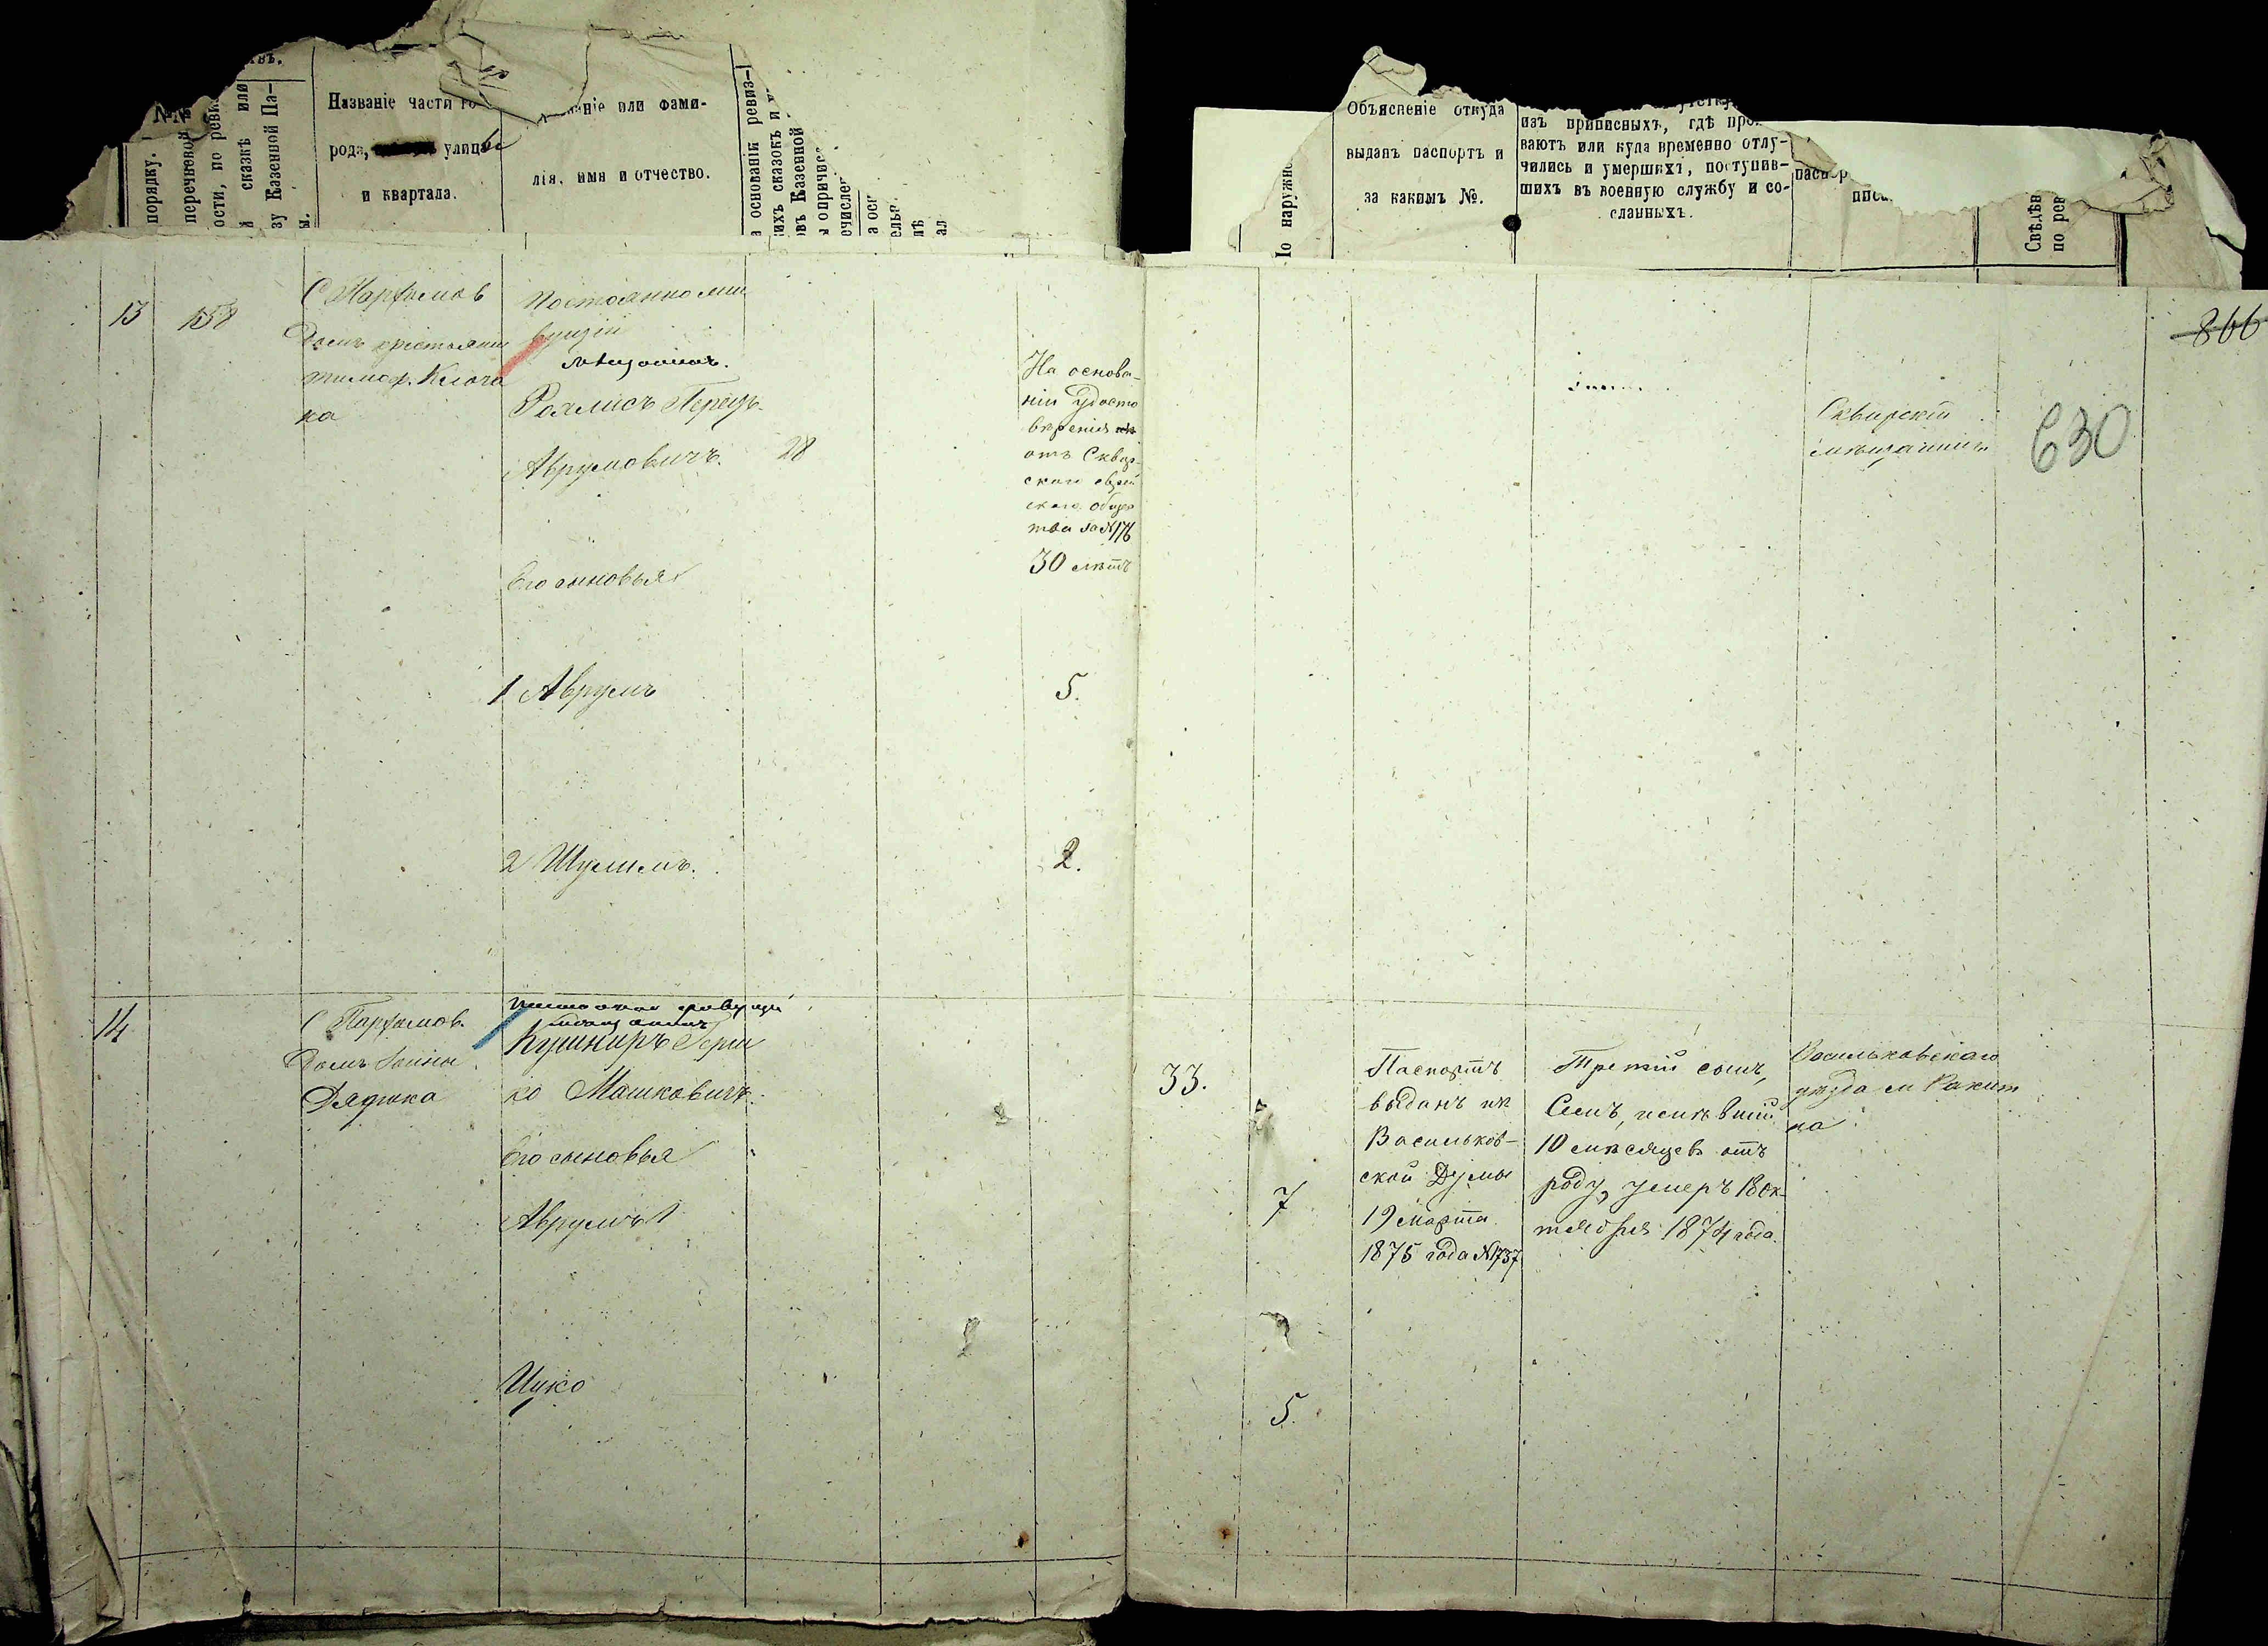 №№
порядку.
перечневой
ости, по ревиз
сказкѣ или
зу Казенной Па-
ы.
Названіе части го-
рода, улицы
и квартала.
ніе или фами-
лія, имя и отчество.
а основаніи ревиз-
ихъ сказокъ и
овъ Казенной
ы о причис
ечислен
Объясненіе откуда
выданъ паспортъ и
за какимъ №.
изъ приписныхъ, гдѣ про
ваютъ или куда временно отлу-
чились и умершихъ, поступив-
шихъ въ военную службу и со-
сланныхъ.
по наружно
паспор
писа
Свѣдѣн
по рев
13
158
С Парфимов
Домъ крестьяни
тимоф. Клоча
ка
Постоянно жи
вущій
мѣщанинъ.
Роялисъ Перецъ
Аврумовичъ.
28
На основа-
ніи Удосто
вѣренія
отъ Сквир-
скаго еврей
скаго общес
тва за №176
30 лѣтъ
Сквирскій
мѣщанинъ
630
866
Его сыновья
1 Аврумъ
5.
2 Шулимъ.
2.
14
С Парфимов.
Домъ
Дядюка
Постоянно живущій
мѣщанинъ
Кушниръ Герш
ко Мошковичъ.
33.
Его сыновья
Аврумъ 1
7
Ицко
5.
Паспортъ
выданъ из
Васильков-
ской Думы
19 марта
1875 года №1737
Третій сынъ,
имѣвшій
10 мѣсяцевъ отъ
роду, умеръ 18 Ок-
тября 1874 года.
Васильковскаго
уѣзда м Ракит
на